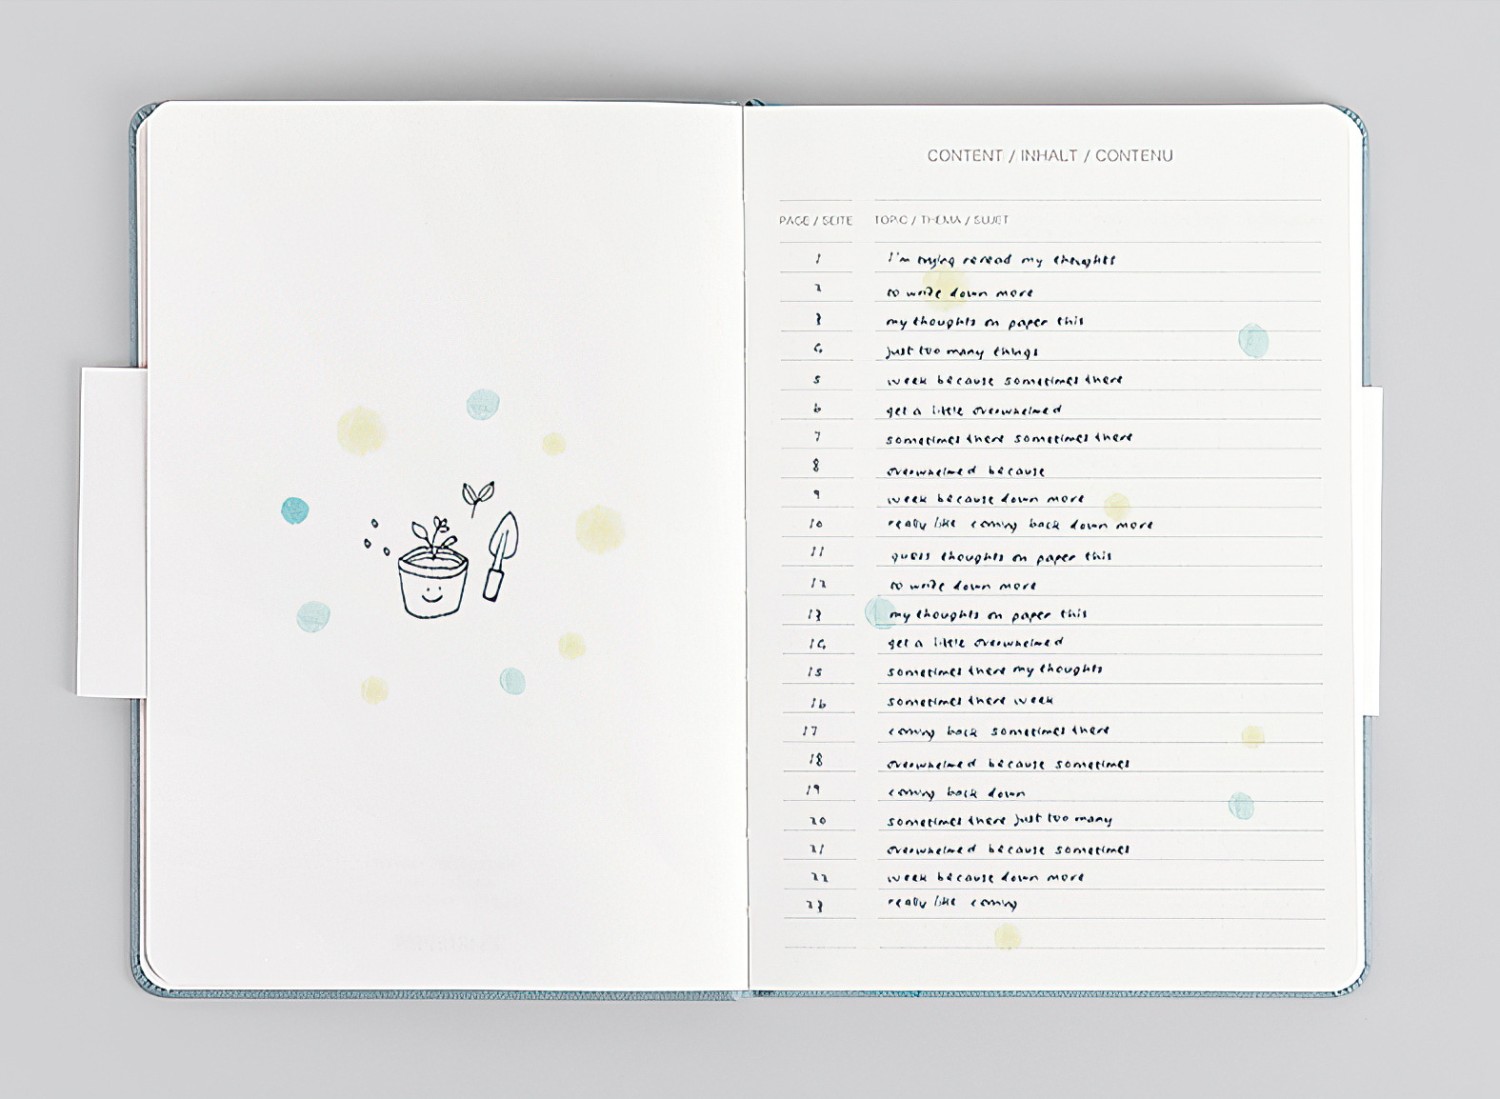 CONTENT / INHALT / CONTENU
PAGE / SEITE TOPIC / THEMA / SUJET
1 I'm trying reread my thoughts
2 to write down more
3 my thoughts on paper this
4 just too many things
5 week because sometimes there
6 get a little overwhelmed
7 sometimes there sometimes there
8 overwhelmed because
9 week because down more
10 really like coming back down more
11 guess thoughts on paper this
12 to write down more
13 my thoughts on paper this
14 get a little overwhelmed
15 sometimes there my thoughts
16 sometimes there week
17 coming back sometimes there
18 overwhelmed because sometimes
19 coming back down
20 sometimes there just too many
21 overwhelmed because sometimes
22 week because down more
23 really like coming